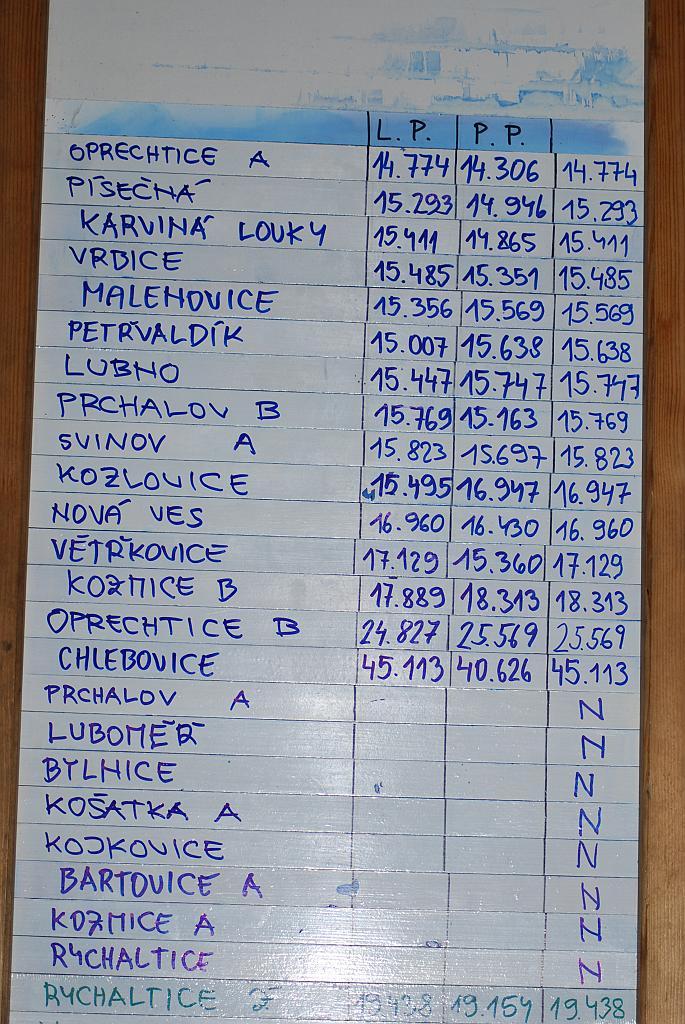 L. P. P. P.
OPRECHTICE A 14.774 14.306 14.774
PÍSEČNÁ 15.293 14.946 15.293
KARVINÁ LOUKY 15.411 14.865 15.411
VRBICE 15.485 15.351 15.485
MALENOVICE 15.356 15.569 15.569
PETRVALDÍK 15.007 15.638 15.638
LUBNO 15.447 15.747 15.747
PRCHALOV B 15.769 15.163 15.769
SVINOV A 15.823 15.697 15.823
KOZLOVICE 15.495 16.947 16.947
NOVÁ VES 16.960 16.430 16.960
VĚTŘKOVICE 17.129 15.360 17.129
KOZMICE B 17.889 18.313 18.313
OPRECHTICE B 24.827 25.569 25.569
CHLEBOVICE 45.113 40.626 45.113
PRCHALOV A N
LUBOMĚŘ N
BYLNICE N
KOŠATKA A N
KOJKOVICE N
BARTOVICE A N
KOZMICE A N
RYCHALTICE N
RYCHALTICE 19.438 19.154 19.438